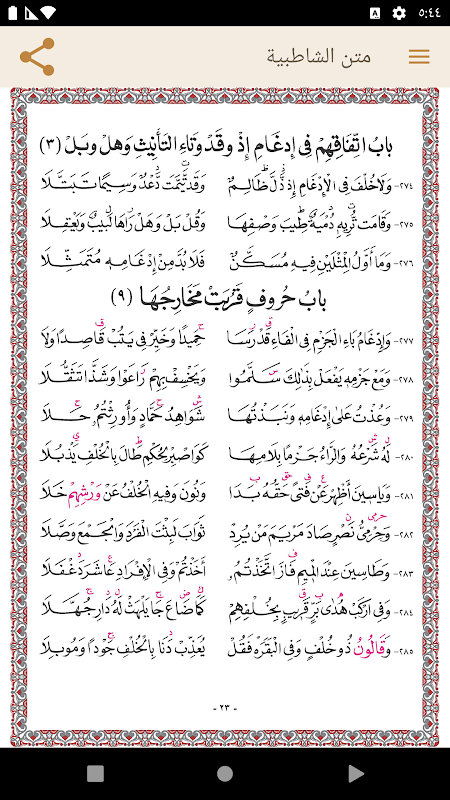 ٥:٤٤
متن الشاطبية
بابُ اتِّفَاقِهِمْ فِي إِدْغَامِ إِذْ وَقَدْ وَتَاءِ التَّأْنِيثِ وَهَلْ وَبَلْ (٣)
٢٧٤- وَلَا خُلْفَ فِي الْإِدْغَامِ إِذْ ذَلَّ ظَالِمٌ وَقَدْ تَيَّمَتْ دَعْدٌ وَسِيمًا تَبَتَّلَا
٢٧٥- وَقَامَتْ تُرِيهِ دُمْيَةٌ طِيبَ وَصْفِهَا وَقُلْ بَلْ وَهَلْ رَاهَا لَبِيبٌ وَيَعْقِلَا
٢٧٦- وَمَا أَوَّلُ الْمِثْلَيْنِ فِيهِ مُسَكَّنٌ فَلَا بُدَّ مِنْ إِدْغَامِهِ مُتَمَثِّلَا
بابُ حُرُوفٍ قَرُبَتْ مَخَارِجُهَا (٩)
٢٧٧- وَإِدْغَامُ بَاءِ الْجَزْمِ فِي الْفَاءِ قَدْ رَسَا حَمِيدًا وَخَيِّرْ فِي يَتُبْ قَاصِدًا وَلَا
٢٧٨- وَمَعْ جَزْمِهِ يَفْعَلْ بِذَلِكَ سَلَّمُوا وَيَخْسِفْ بِهِمْ رَاعَوْا وَشَذَّا تَثَقُّلَا
٢٧٩- وَعُذْتُ عَلَى إِدْغَامِهِ وَنَبَذْتُهَا شَوَاهِدُ حَمَّادٍ وَأُورِثْتُمُ حَلَا
٢٨٠- لَهُ شَرْعُهُ وَالرَّاءُ جَزْمًا بِلَامِهَا كَوَاصْبِرْ لِحُكْمِ طَالَ بِالْخُلْفِ يَذْبُلَا
٢٨١- وَيَاسِينَ أَظْهِرْ عَنْ فَتًى حَقُّهُ بَدَا وَنُونَ وَفِيهِ الْخُلْفُ عَنْ وَرْشِهِمْ خَلَا
٢٨٢- وَحِرْمِيُّ نَصْرٍ صَادَ مَرْيَمَ مَنْ يُرِدْ ثَوَابَ لَبِثْتَ الْفَرْدَ وَالْجَمْعَ وَصَّلَا
٢٨٣- وَطَاسِينَ عِنْدَ الْمِيمِ فَازَ اتَّخَذْتُمُ أَخَذْتُمْ وَفِي الْإِفْرَادِ عَاشَرَ دَغْفَلَا
٢٨٤- وَفِي ارْكَبْ هُدَى بَرٍّ قَرِيبٍ بِخُلْفِهِمْ كَمَا ضَاعَ جَا يَلْهَثْ لَهُ دَارِ جُهَّلَا
٢٨٥- وَقَالُونُ ذُو خُلْفٍ وَفِي الْبَقَرَهْ فَقُلْ يُعَذِّبْ دَنَا بِالْخُلْفِ جَوْدًا وَمُوبِلَا
- ٢٣ -